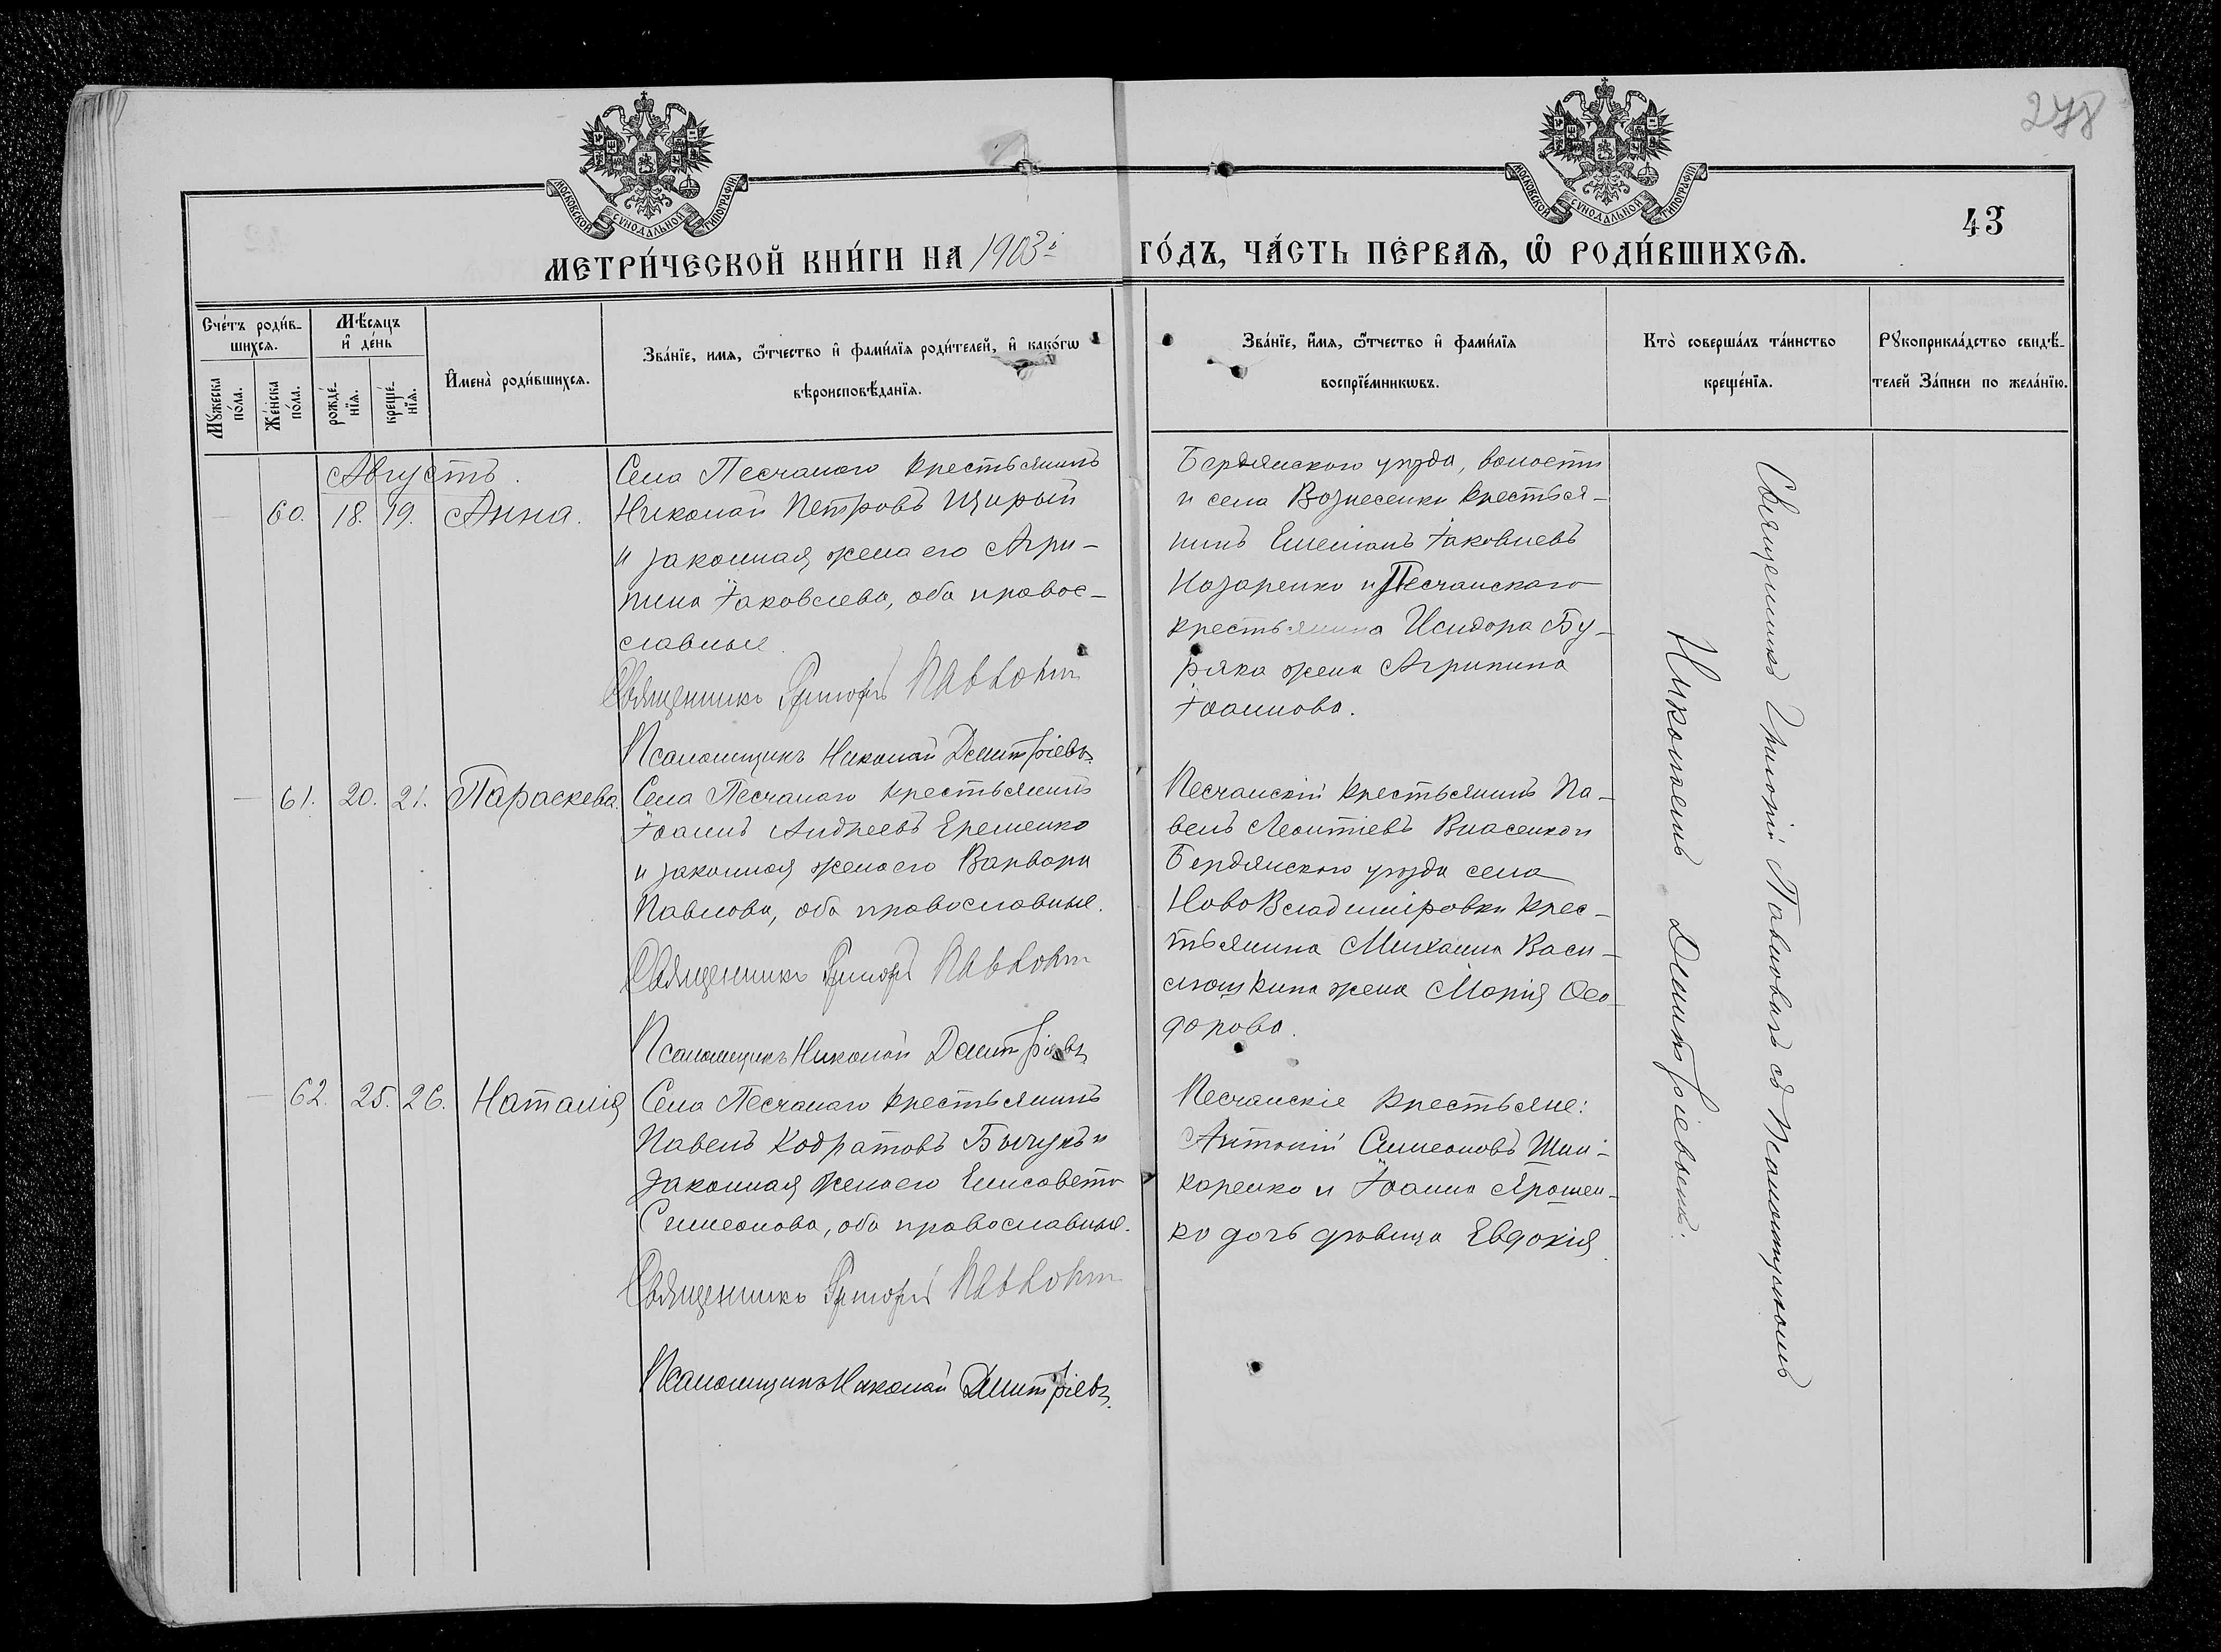 278
МОСКОВСКОЙ СѴНОДАЛЬНОЙ ТИПОГРАФІИ
МОСКОВСКОЙ СѴНОДАЛЬНОЙ ТИПОГРАФІИ
43
МЕТРИ́ЧЕСКОЙ КНИ́ГИ НА 1903й ГО́ДЪ, ЧА́СТЬ ПЕ́РВАѦ, Ѡ РОДИ́ВШИХСѦ.
Сче́тъ роди́в-
шихсѧ.
Мꙋ́жеска
по́ла.
Же́нска
по́ла.
Мѣ́сѧцъ
и҆ де́нь
рожде́-
нїѧ.
креще́-
нїѧ.
И҆мена̀ роди́вшихсѧ.
Зва́нїе, имѧ, ѻ҆́тчество и҆ фами́лїѧ роди́телей, и҆ како́гѡ
вѣроисповѣ́данїѧ.
Зва́нїе, и҆́мѧ, ѻ҆́тчество и҆ фами́лїѧ
воспрїе́мникѡвъ.
Кто̀ соверша́лъ та́инство
креще́нїѧ.
Рꙋкоприкла́дство свидѣ́-
телей За́писи по жела́нїю.
Августъ.
60. 18. 19. Анна.
Села Песчанаго крестьянинъ
Николай Петровъ Щирый
и законная жена его Агри-
пина Іаковлева, оба правос-
славные.
Священникъ Григорій Павловъ
Псаломщикъ Николай Дмитріевъ
Бердянскаго уѣзда, волости
и села Вознесенки крестья-
нинъ Емеліанъ Іаковлевъ
Назаренко и Песчанскаго
крестьянина Исидора Бу-
ряка жена Агрипина
Іоаннова.
61. 20. 21. Параскева.
Села Песчанаго крестьянинъ
Іоаннъ Андреевъ Еременко
и законная жена его Варвара
Павлова, оба православные.
Священникъ Григорій Павловъ
Псаломщикъ Николай Дмитріевъ
Песчанскій крестьянинъ Па-
велъ Леонтіевъ Власенко и
Бердянскаго уѣзда села
НовоВладиміровки крес-
тьянина Михаила Васи-
люшкина жена Марія Ѳео-
дорова.
62. 25. 26. Наталія
Села Песчанаго крестьянинъ
Павелъ Кодратовъ Бычукъ и
законная жена его Елисавета
Симеонова, оба православные.
Священникъ Григорій Павловъ
Псаломщикъ Николай Дмитріевъ
Песчанскіе крестьяне:
Антоній Симеоновъ Шин-
каренко и Іоанна Ярошен-
ко дочь дѣвица Евдокія.
Священникъ Григорій Павловъ съ Псаломщикомъ
Николаемъ Дмитріевымъ.